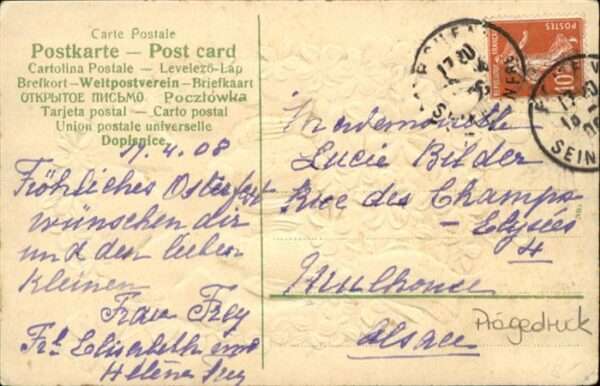 Carte Postale
Postkarte — Post card
Cartolina Postale — Levelező-Lap
Brefkort – Weltpostverein – Briefkaart
ОТКРЫТОЕ ПИСЬМО Pocztówka
Tarjeta postal — Carto postal
Union postale universelle
Dopisnice
17.4.08
Fröhliches Osterfest
wünschen dir
und den lieben
Kleinen
Frau Frey
Frl Elisabeth und
Helena Frey
POSTES
10
17 30
SEINE
17 30
SEINE
Mademoiselle
Lucie Bilder
Rue des Champs
– Elysées
4
Mulhouse
Alsace
Prägedruck